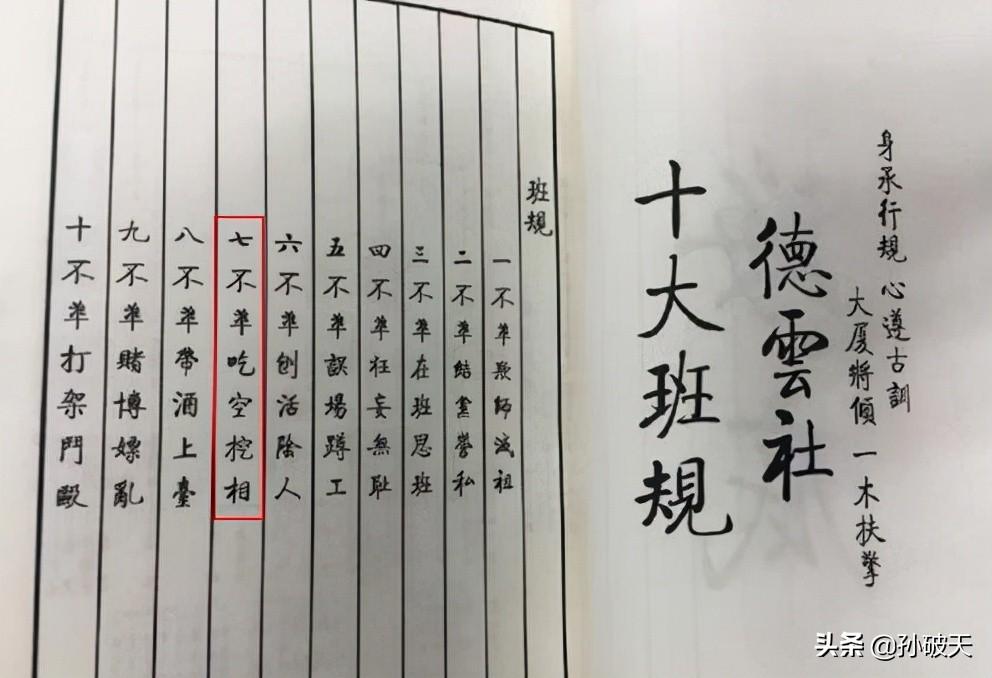 身承行規 心遵古訓
大厦將傾 一木扶擎
德雲社
十大班規
班規
一不準欺師滅祖
二不準結黨營私
三不準在班思班
四不準狂妄無耻
五不準誤場蹲工
六不準刨活陰人
七不準吃空挖相
八不準帶酒上臺
九不準賭博嫖亂
十不準打架鬥毆
头条 @孙破天